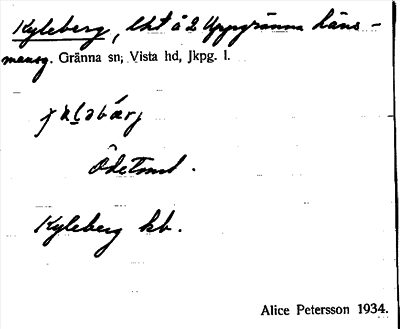 Kyleberg, lht å 2 Uppgränna läns-
mansg. Gränna sn; Vista hd, Jkpg. l.
Ödetomt.
Kyleberg kb.
Alice Petersson 1934.